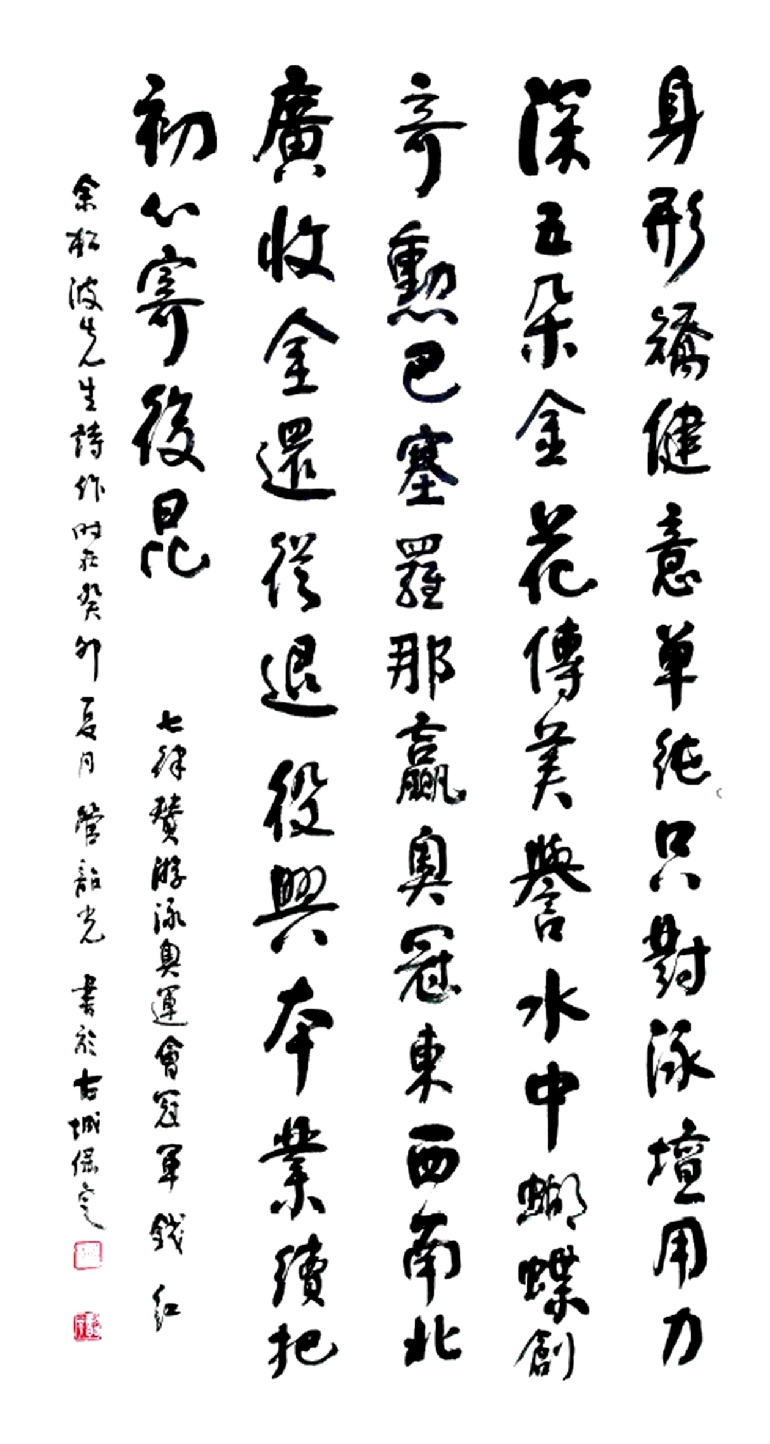 身形矯健意單純只對泳壇用力
深五朵金花傳美譽水中蝴蝶創
奇勳巴塞羅那贏奧冠東西南北
廣收金還從退役興本業續把
初心寄後昆
七律贊游泳奧運會冠軍錢紅
余松波先生詩作时在癸卯夏月管韶光書於古城保定